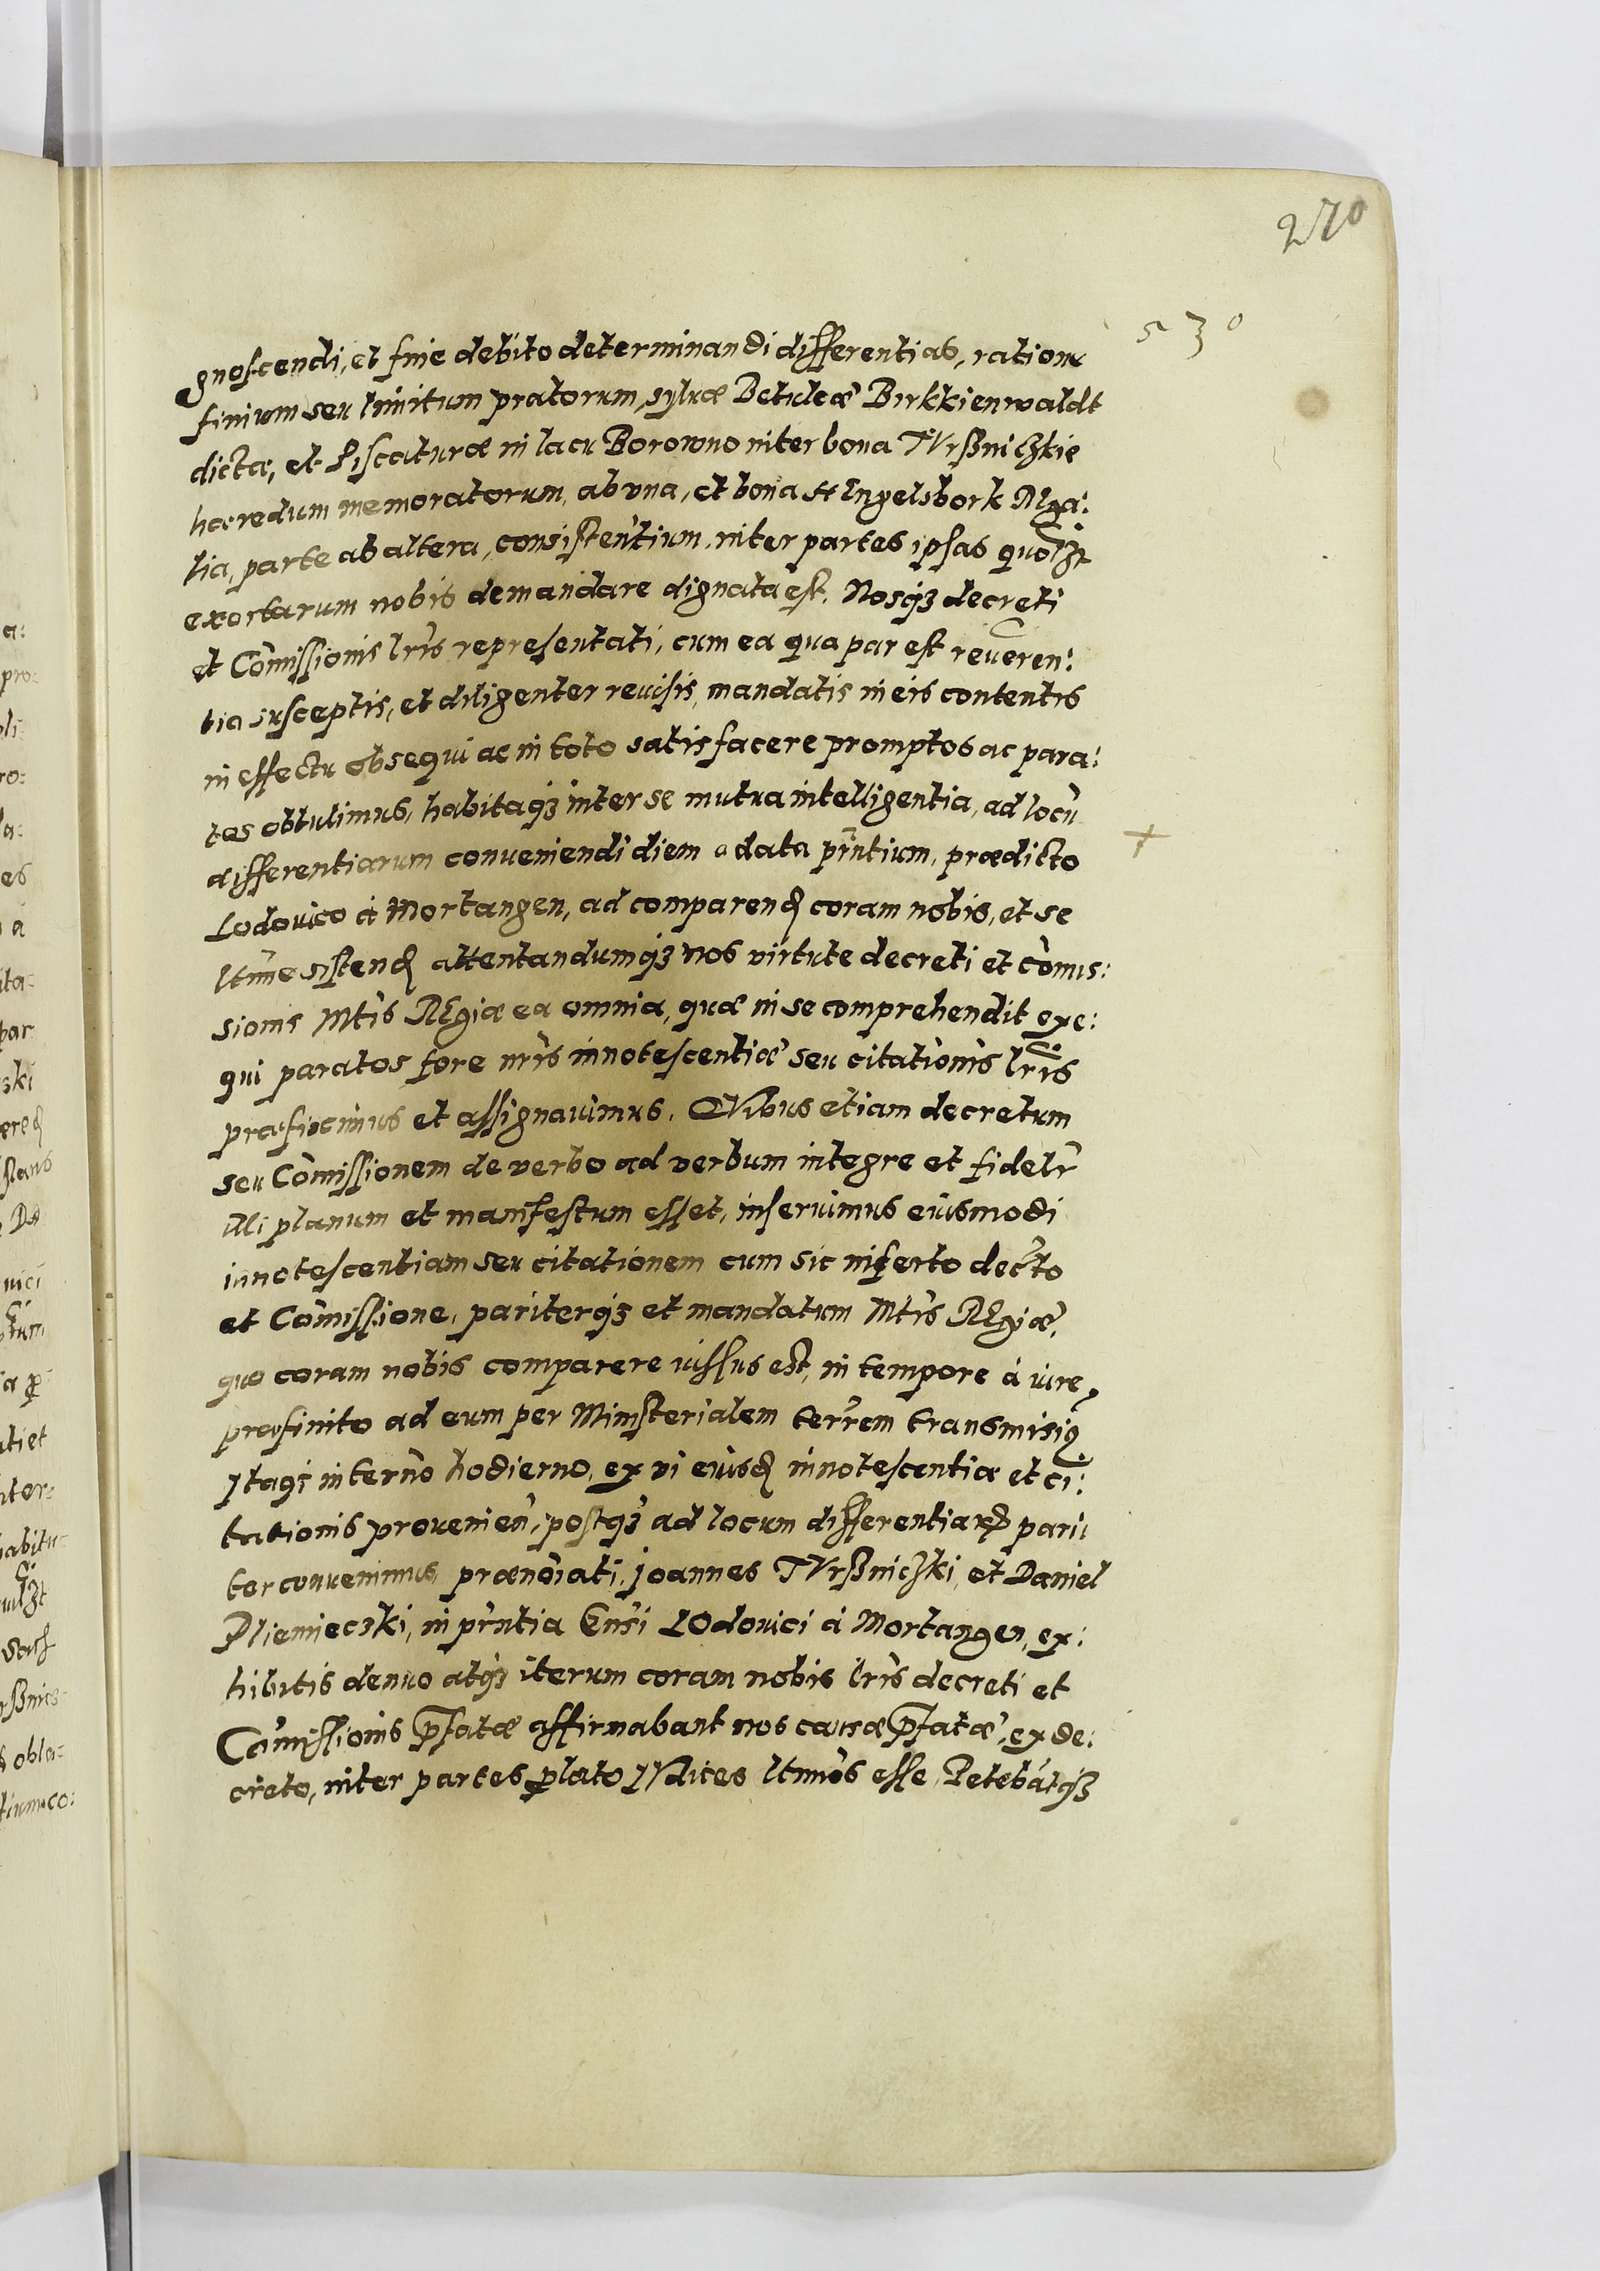 270
530
gnoscendi, et fine debito determinandi differentias, ratione
finium seu limitum pratorum, sylvæ Betuleæ Birkkienwaldt
dictæ, et Piscaturæ in lacu Borowno inter bona TVrßniczkie
hæredum memoratorum, ab vna, et bona Engelsbork REga:
lia, parte ab altera, consistentium, inter partes ipsas quolzt
exortarum nobis demandare dignata est. Nosqз decreti
et Com̃issionis lrĩs repręsentati, cum ea qua par est reueren:
tia susceptis, et diligenter reuisis, mandatis in eis contentis
in effectu obsequi ac in toto satisfacere promptos ac para:
tos obtulimus, habitaqз inter se mutua intelligentia, ad locũ
differentiarum conueniendi diem a data prñtium, prædicto
Lodouico à Mortangen, ad comparend coram nobis, et se
ltĩme sistend attentandumqз nos virtute decreti et com̃is:
sionis Mtĩs REgiæ ea omnia, quæ in se comprehendit exe:
qui paratos fore nrĩs innotescentiæ seu citationis lrĩs
præfiximus et assignauimus. QVibus etiam decretum
seu Com̃issionem de verbo ad verbum integre et fidelr̃
illi planum et manifestum esset, inseruimus eiusmodi
innotescentiam seu citationem cum sic inserto decr̃to
et Com̃issione, pariterqз et mandatum Mtĩs REgiæ,
quo coram nobis comparere iussus est, in tempore à iure
præfinito ad eum per Ministerialem terr̃em transmisiꝯ
Itaqз in terno hodierno, ex vi eiusd innotescentiæ et ci:
tationis prouenien̄, postqз ad locum differentiarꝝ pari
ter conuenimus, prænoĩati, Joannes TVrßniczki, et Daniel
Pliemieczki, in prñtia Gnsi LOdouici à Mortangen, ex:
hibitis denuo atqз iterum coram nobis lrĩs decreti et
Com̃issionis p̃fatæ affirmabant nos causæ p̃fatæ, ex de:
creto, inter partes ꝓlato IVdices ltĩmos esse, Petebatqз